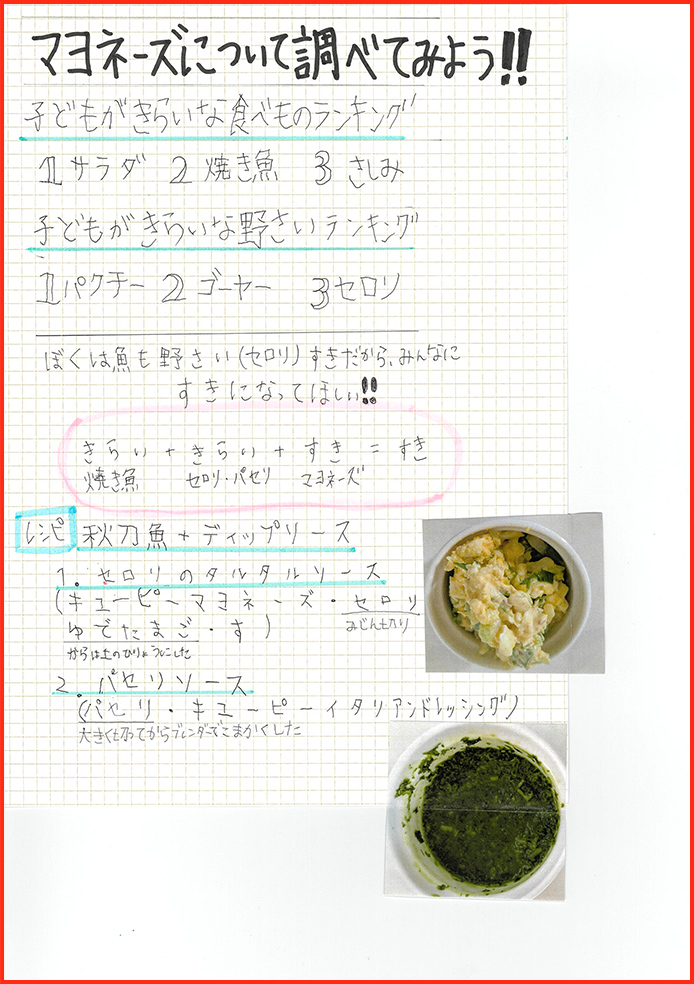 マヨネーズについて調べてみよう!!
子どもがきらいな食べものランキング
1サラダ 2 焼き魚 3 さしみ
子どもがきらいな野さいランキング
1パクチー 2 ゴーヤー 3セロリ
ぼくは魚も野さい(セロリ)すきだから、みんなに
すきになってほしい!!
きらい + きらい + すき = すき
焼き魚 セロリ・パセリ マヨネーズ
レシピ 秋刀魚+ディップソース
1. セロリのタルタルソース
(キューピーマヨネーズ・セロリ
みじん切り
ゆでたまご・す)
からは土のひりょうにした
2. パセリソース
(パセリ・キューピーイタリアンドレッシング)
大きく切ってからブレンダーでこまかくした